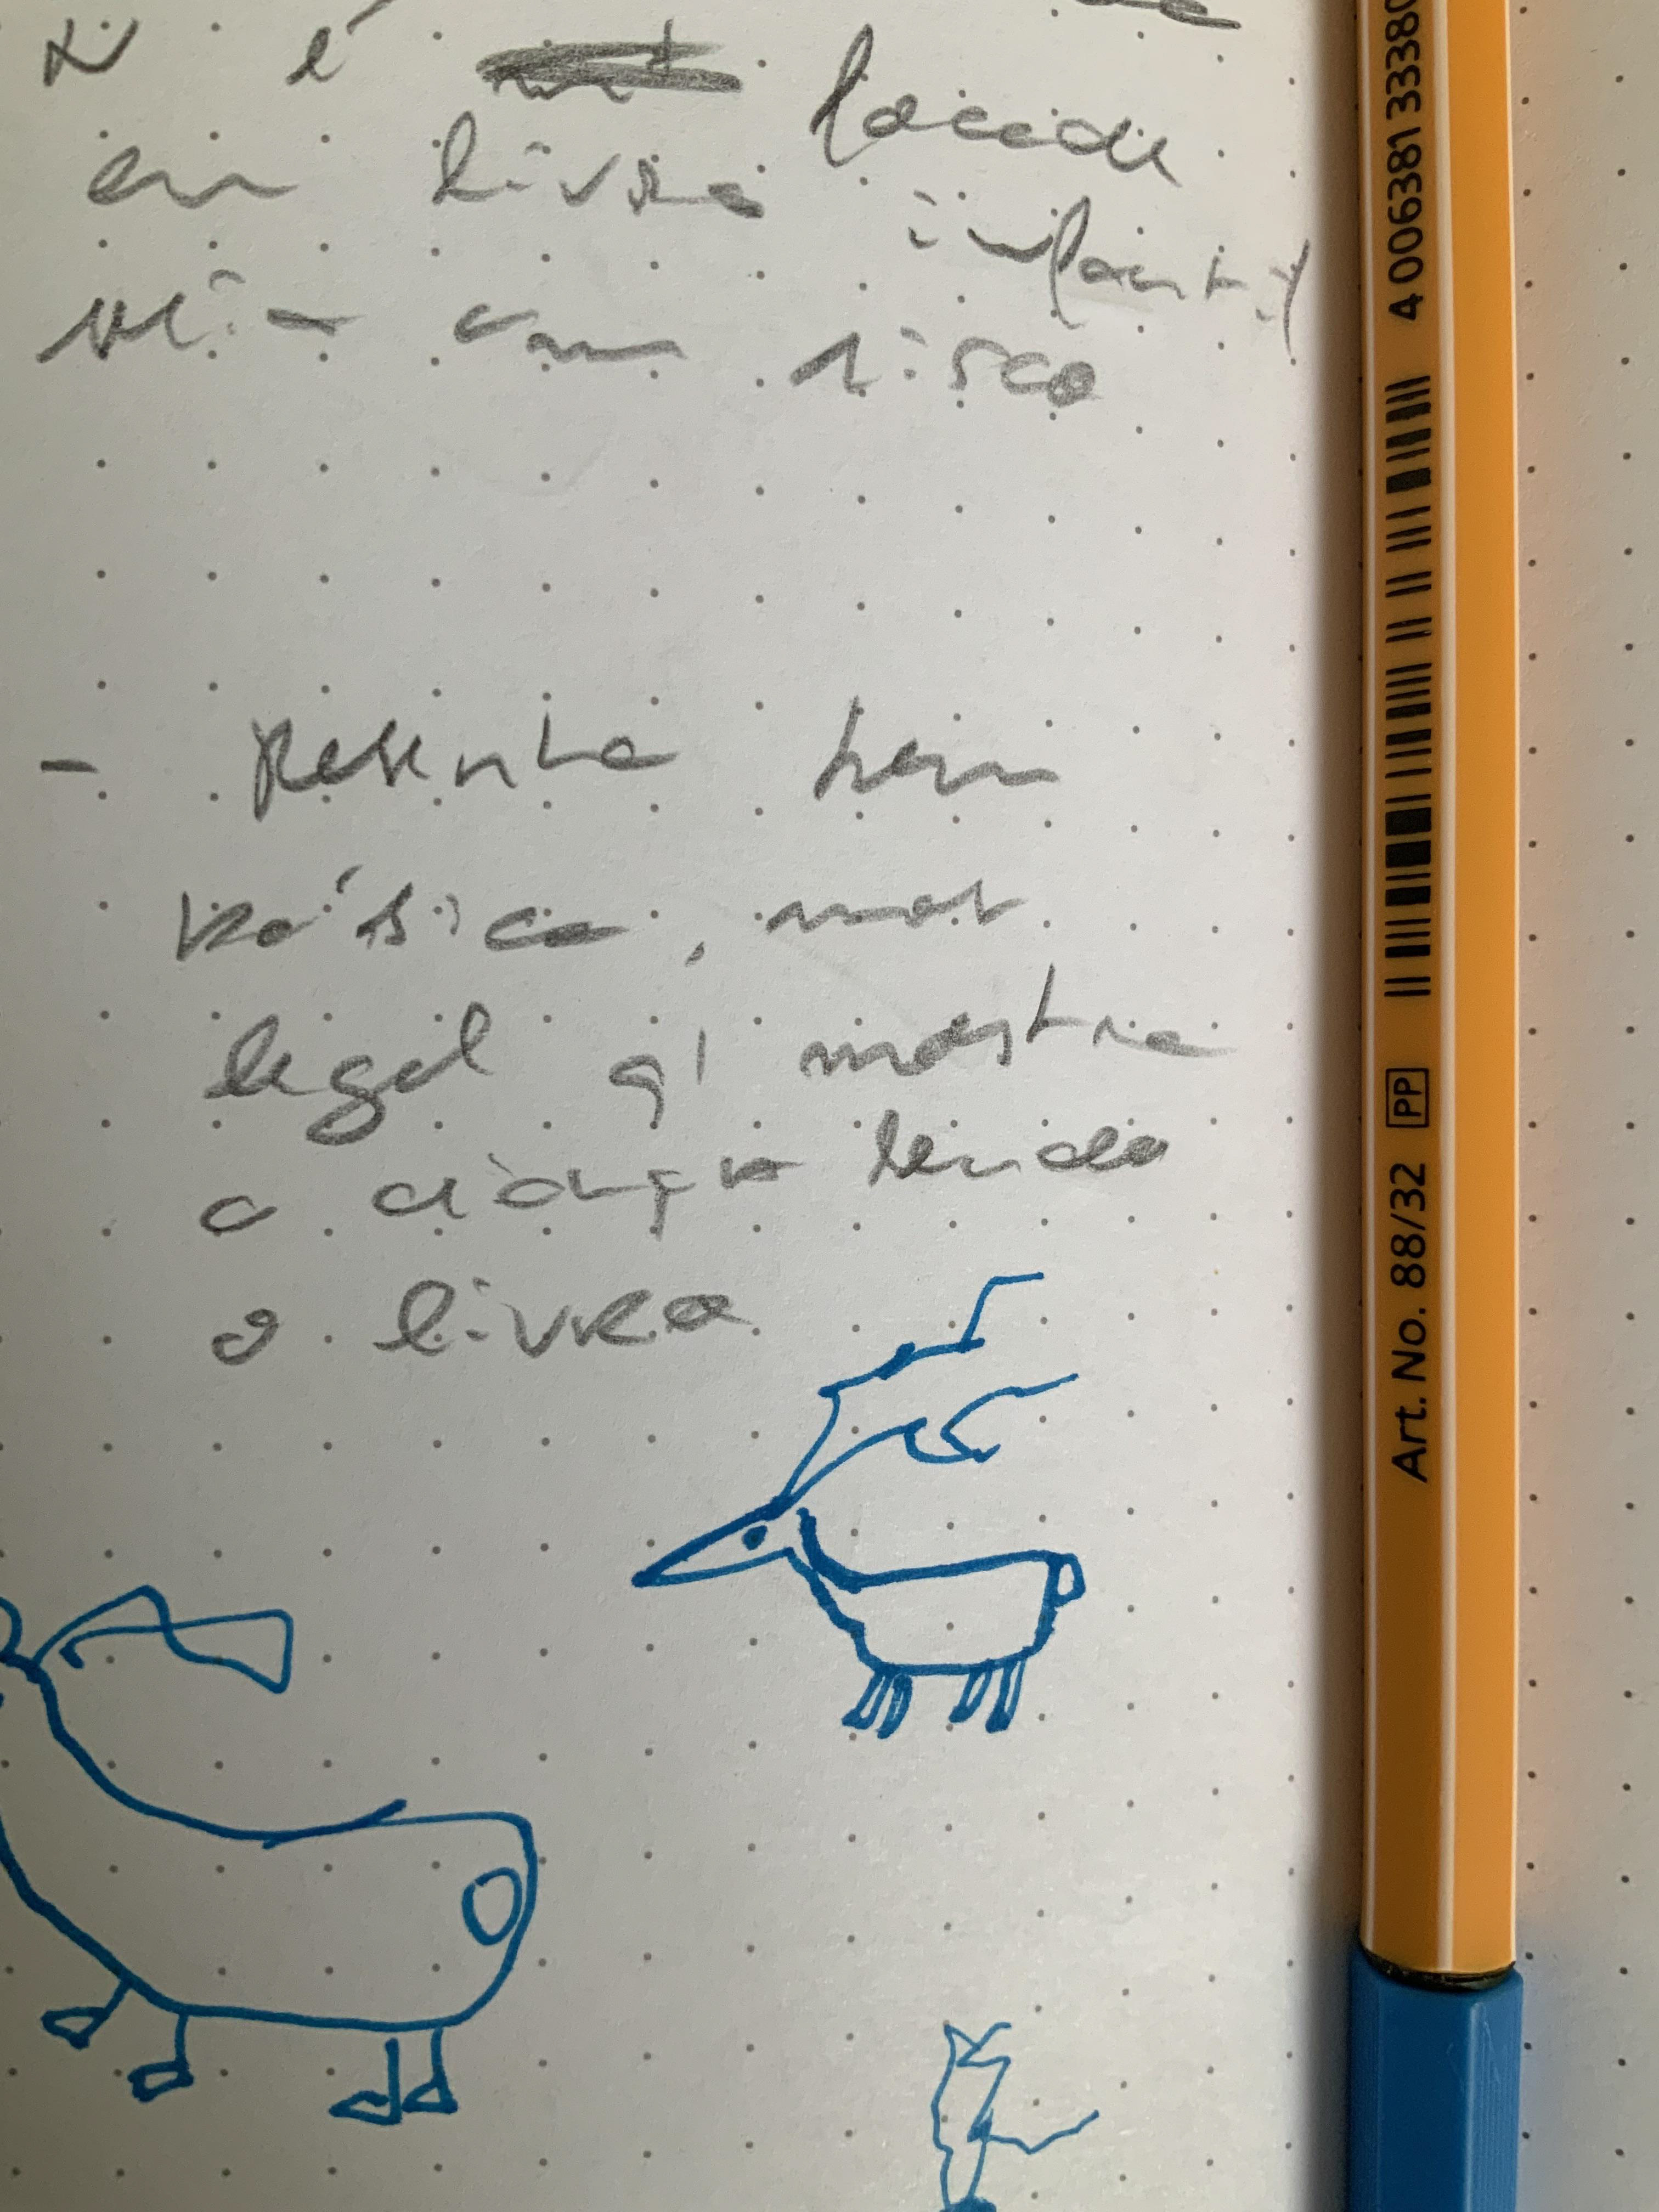 N é focado
em livro infantil
com risco
- Resenha bem
básica, mas
legal q' mostra
a criança lendo
o livro
4 006381 33380
Art. No. 88/32 PP